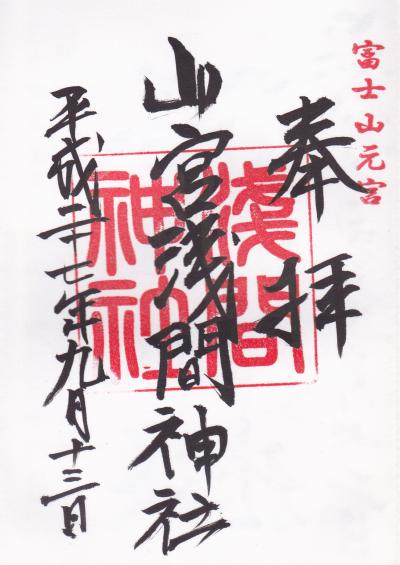 富士山元宮
奉拝
浅間神社
山宮浅間神社
平成二十七年九月十三日